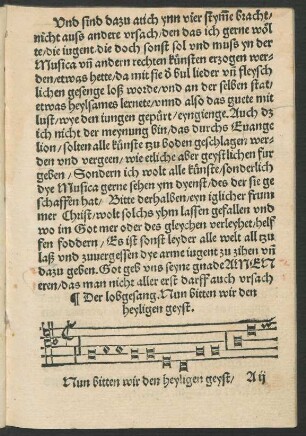 Und sind dazu auch ynn vier stym̄e bracht/
nicht auss andere vrsach/den das ich gerne wöl
te/die iugent/die doch sonst sol vnd muß yn der
Musica vn̄ andern rechten künsten erzogen wer-
den/etwas hette/da mit sie ď bul lieder vn̄ fleysch
lichen gesenge loß worde/vnd an der selben stat/
etwas heylsames lernete/vnnd also das guete mit
lust/wye den iungen gepürt/eyngienge. Auch dz
ich nicht der meynung bin/das durchs Euange
lion/solten alle künste tzu boden geschlagen wer-
den vnd vergeen/wie etliche aber geystlichen für
geben/Sondern ich wolt alle künste/sonderlich
dye Musica gerne sehen ym dyenst/des der sie ge
schaffen hat/Bitte derhalben/eyn iglicher frum
mer Christ/wolt solchs yhm lassen gefallen vnd
wo im Got mer oder des gleychen verleyhet/helf
fen foddern/Es ist sonst leyder alle welt all tzu
laß vnd zuuergessen dye arme iugent zu zihen vn̄
dazu geben. Got geb vns seyne gnade AMEN
eren/das man nicht aller erst darff auch vrsach
¶ Der lobgesang. Nun bitten wir den
heyligen geyst.
Nun bitten wir den heyligen geyst/ A ij